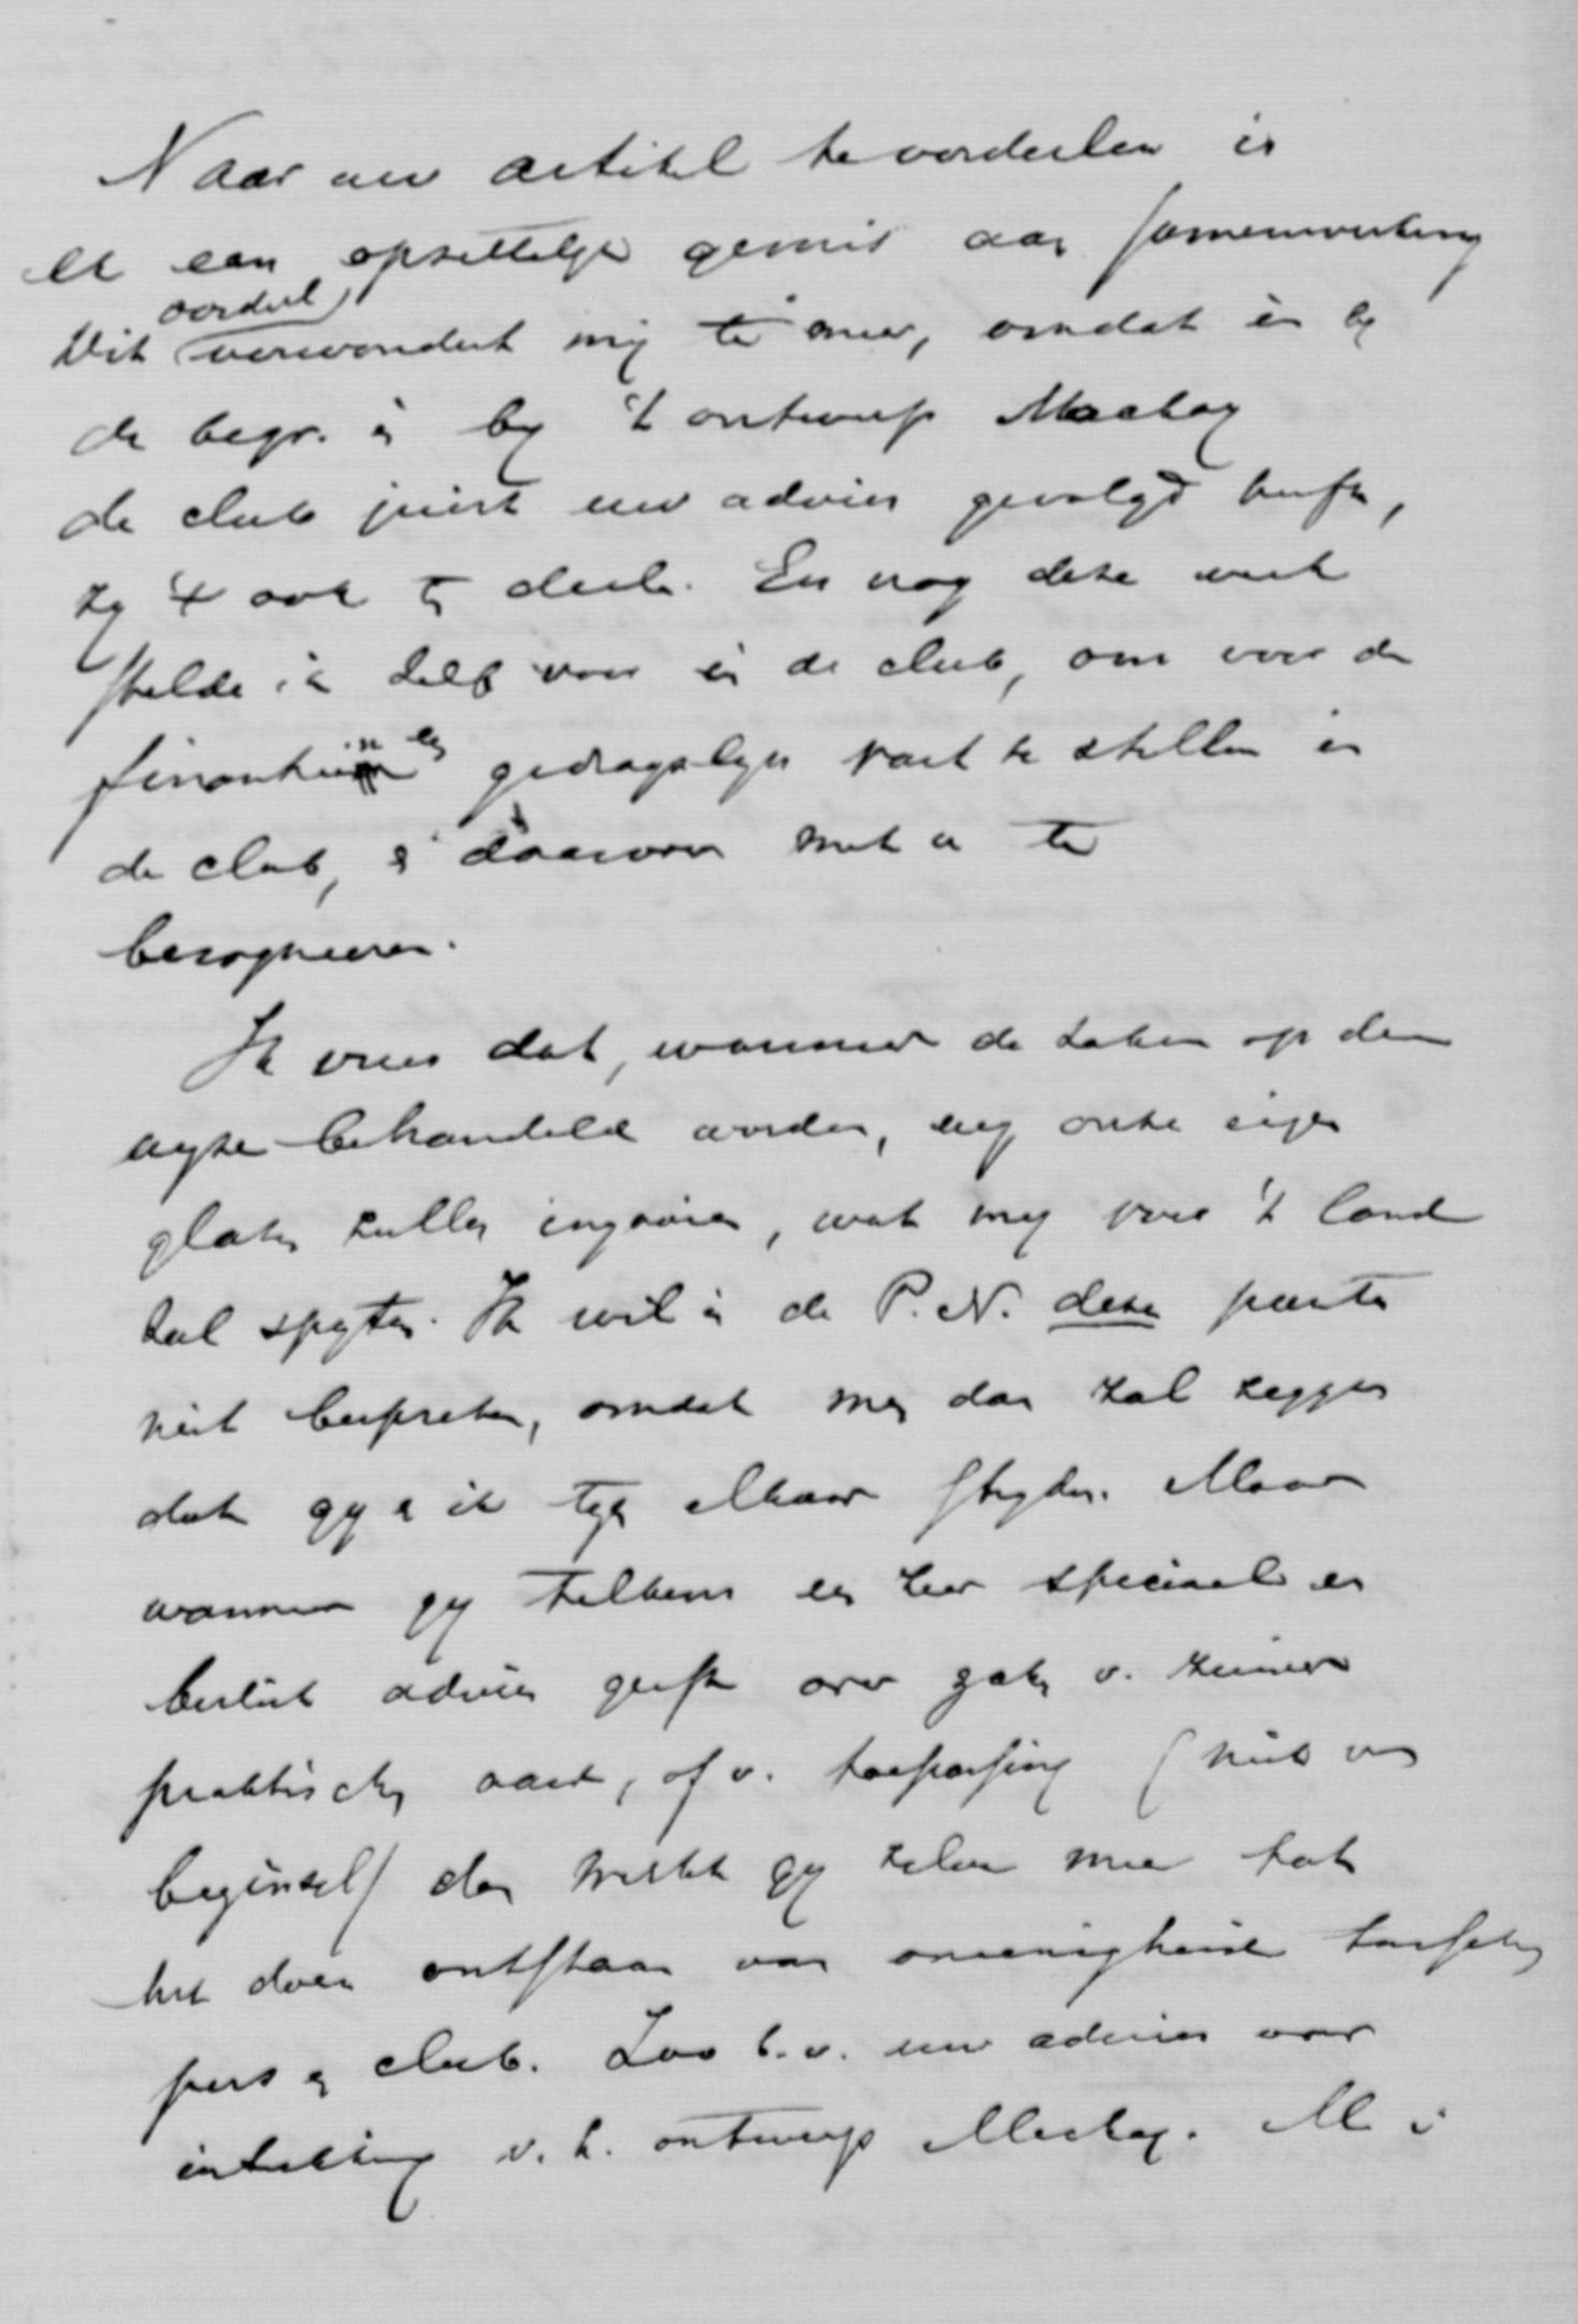 Naar uw artikel te oordeelen is
er een opzettelijk gemis aan samenwerking
Dit oordeel verwondert mij te meer, omdat in bij
de begr. en bij 't ontwerp Mackay
de club juist uw advies gevolgd heeft,
zij 't ook ten deele. En nog deze week
stelde ik zelf voor in de club, om over de
financieën een gedragslijn vast te stellen in
de club, en daarover met u te
besogneeren.
Ik vrees dat, wanneer de zaken op deze
wyze behandeld worden, wij onze eigen
glazen zullen ingooien, wat mij voor 't land
zal spyten. Ik wil in de P.N. deze punten
niet bespreken, omdat men dan zal zeggen
dat gy en ik tegen elkaar stryden. Maar
wanneer gy telkens een zeer speciaal en
beslist advies geeft over zaken v. zuiver
praktischen aard, of v. toepassing (niet van
beginsel) dan werkt gy zelve mee tot
het doen ontstaan van oneenigheid tusschen
pers en club. Zoo b.v. uw advies over
intrekking v. h. ontwerp Mackay. M i